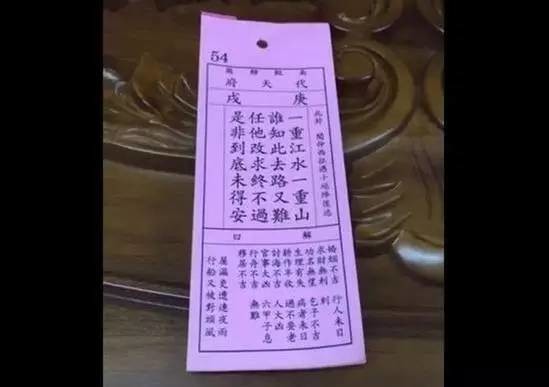 54
代天府
庚戌
此卦
一重江水一重山
誰知此去路又難
任他改求終不過
是非到底未得安
解曰
婚姻不吉
求財無利
功名無望
生理有失
耕作半收
討海不吉
官事大凶
行舟不吉
移居不吉
行人未日
到
不吉
病者未日
過不要老
人大凶
六甲子息
無難
屋漏更遭連夜雨
行船又被對頭風